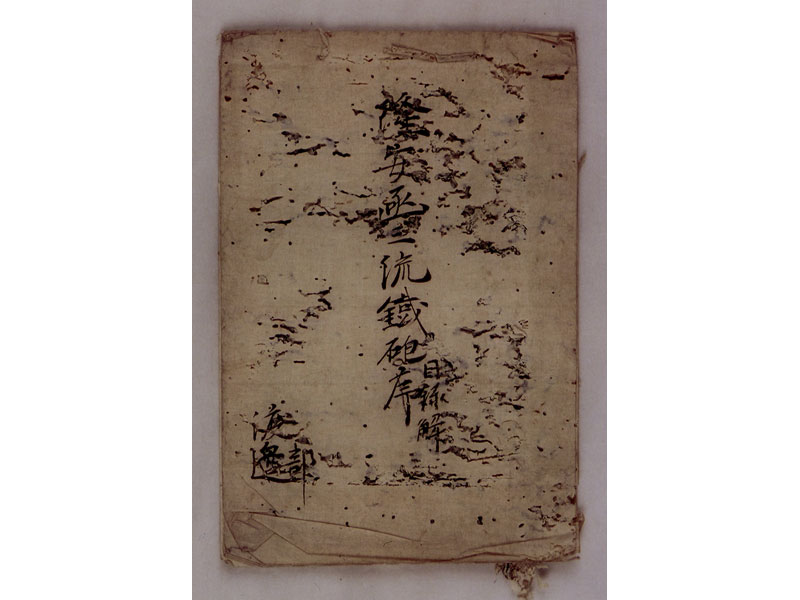 隆安函一流鐵砲序
目録解
渡邊